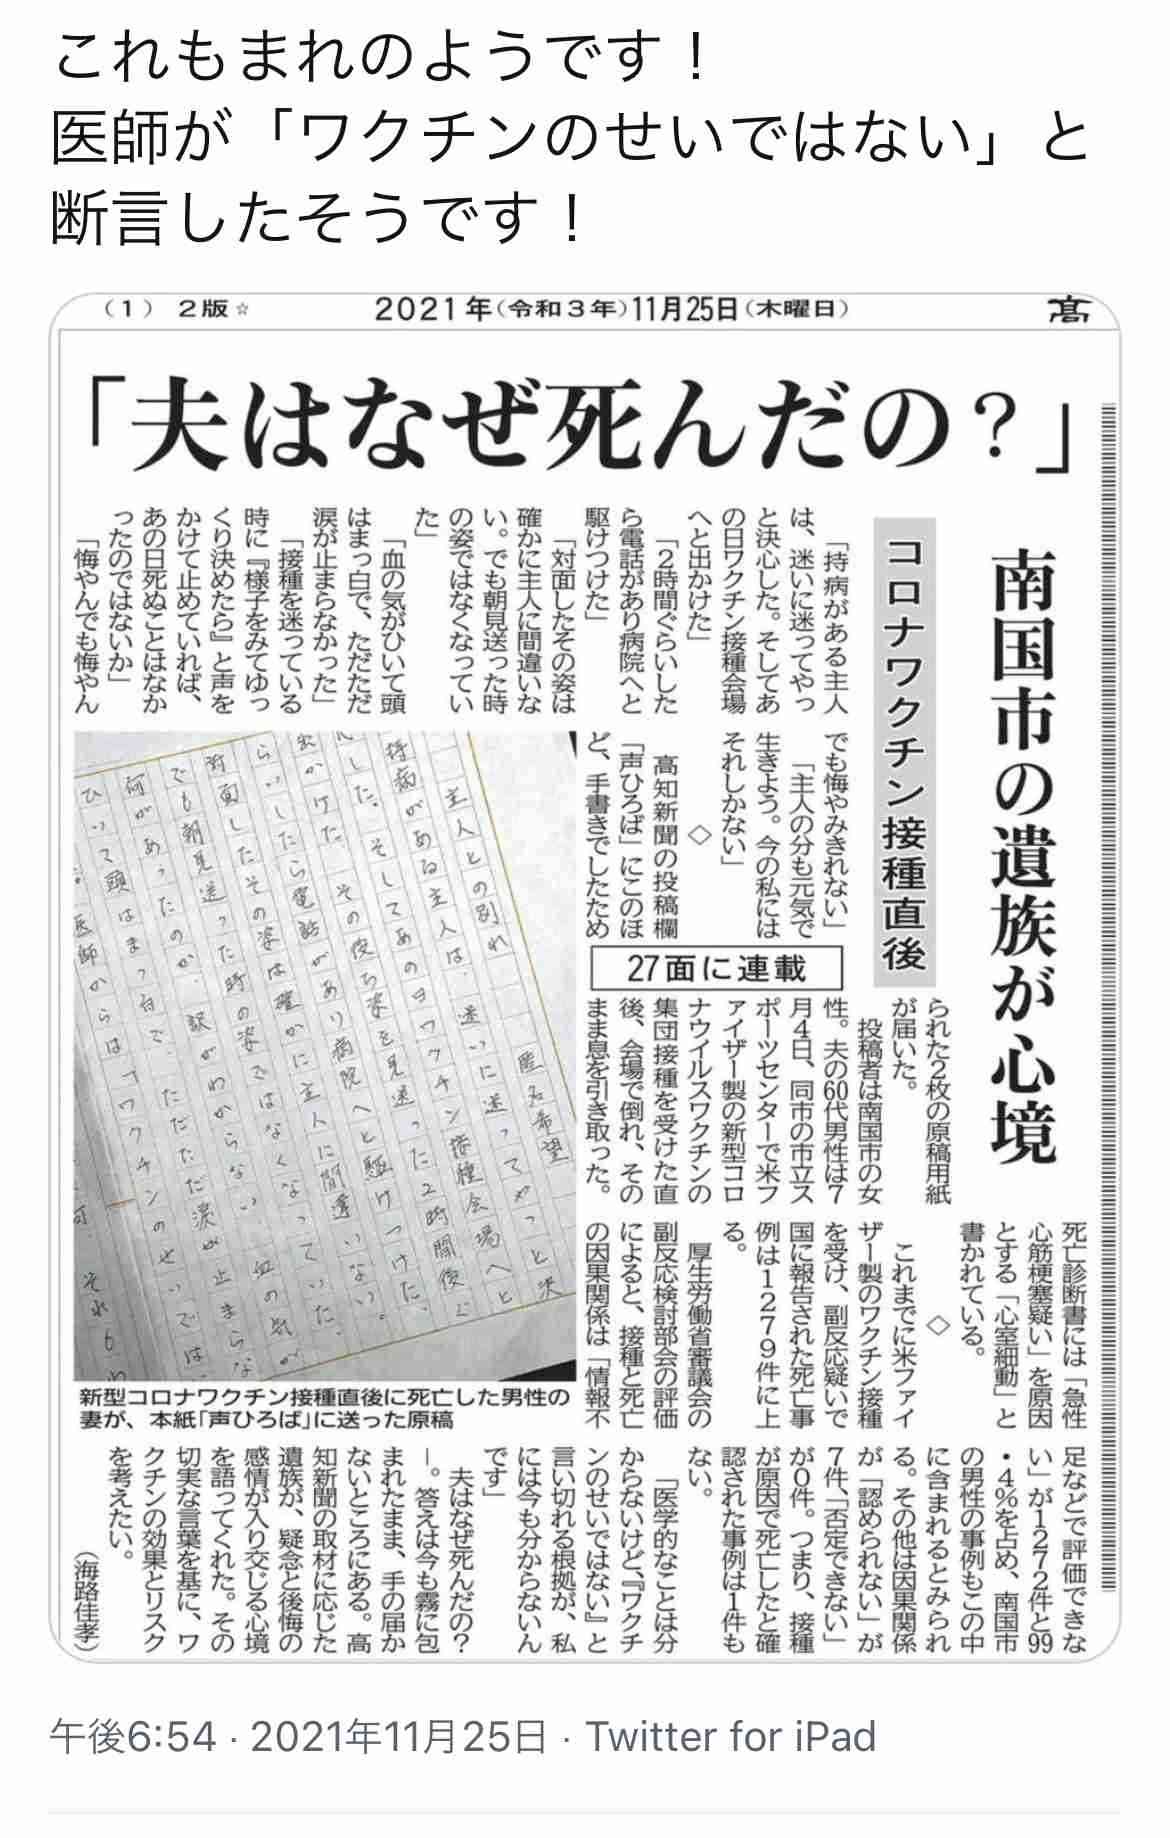 これもまれのようです！
医師が「ワクチンのせいではない」と
断言したそうです！
（１） 2版☆
2021年（令和3年）11月25日（木曜日）
高
「夫はなぜ死んだの？」
南国市の遺族が心境
コロナワクチン接種直後
「持病がある主人
は、迷いに迷ってやっ
と決心した。そしてあ
の日ワクチン接種会場
へと出かけた」
「２時間ぐらいした
ら電話があり病院へと
駆けつけた」
「対面したその姿は
確かに主人に間違いな
い。でも朝見送った時
の姿ではなくなってい
た」
「血の気がひいて頭
はまっ白で、ただただ
涙が止まらなかった」
「接種を迷っている
時に『様子をみてゆっ
くり決めたら』と声を
かけて止めていれば、
あの日死ぬことはなか
ったのではないか」
「悔やんでも悔やん
でも悔やみきれない」
「主人の分も元気で
生きよう。今の私には
それしかない」
◇
高知新聞の投稿欄
「声ひろば」にこのほ
ど、手書きでしたため
27面に連載
られた２枚の原稿用紙
が届いた。
投稿者は南国市の女
性。夫の60代男性は７
月４日、同市の市立ス
ポーツセンターで米フ
ァイザー製の新型コロ
ナウイルスワクチンの
集団接種を受けた直
後、会場で倒れ、その
まま息を引き取った。
死亡診断書には「急性
心筋梗塞疑い」を原因
とする「心室細動」と
書かれている。
◇
これまでに米ファイ
ザー製のワクチン接種
を受け、副反応疑いで
国に報告された死亡事
例は１２７９件に上
る。
厚生労働省審議会の
副反応検討部会の評価
によると、接種と死亡
の因果関係は「情報不
足などで評価できな
い」が１２７２件と99
・４％を占め、南国市
の男性の事例もこの中
に含まれるとみられ
る。その他は因果関係
が「認められない」が
７件、「否定できない」
が０件。つまり、接種
が原因で死亡したと確
認された事例は１件も
ない。
「医学的なことは分
からないけど、『ワクチ
ンのせいではない』と
言い切れる根拠が、私
には今も分からないん
です」
夫はなぜ死んだの？
―。答えは今も霧に包
まれたまま、手の届か
ないところにある。高
知新聞の取材に応じた
遺族が、疑念と後悔の
感情が入り交じる心境
を語ってくれた。その
切実な言葉を基に、ワ
クチンの効果とリスク
を考えたい。
（海路佳孝）
主人との別れ
匿名希望
持病がある主人は、迷いに迷ってやっと決
心した。そしてあの日ワクチン接種会場へと
出かけた。その後ろ姿を見送った。2時間ぐ
らいしたら電話があり病院へと駆けつけた。
対面したその姿は確かに主人に間違いない。
でも朝見送った時の姿ではなくなっていた。
何があったのか、訳がわからない。血の気が
ひいて頭はまっ白で、ただただ涙が止まらな
医師からは「ワクチンのせいでは
新型コロナワクチン接種直後に死亡した男性の
妻が、本紙「声ひろば」に送った原稿
午後6:54 · 2021年11月25日 · Twitter for iPad